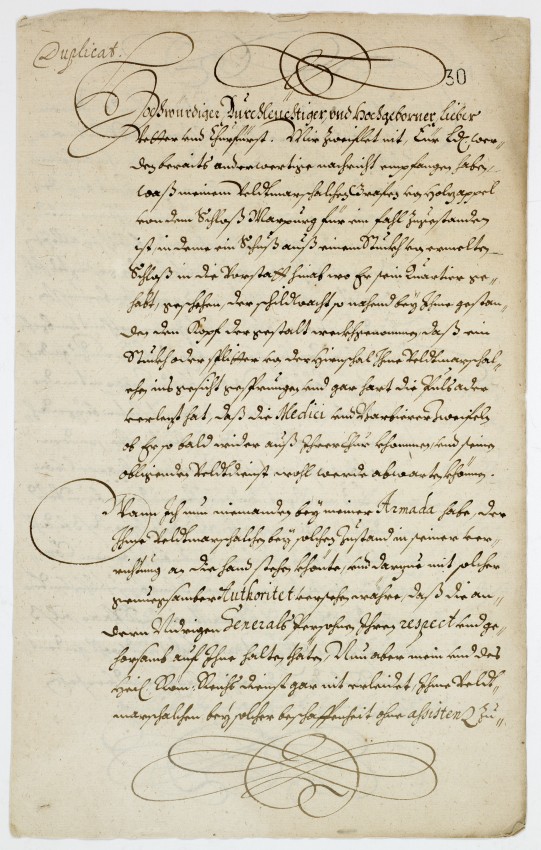 Duplicat.
30
Hochwürdiger Durchleüchtiger, und Hochgeborner, lieber
Vetter und Churfürst. Mir zweiflet nit, Eür Ld: wer-
den beräits anderwertige nachricht empfangen haben,
waß meinem Veldtmarschalchen Grafen von Holzappel
von dem Schloß Marpurg für ein fahl zuegestanden
ist, in deme ein Schuß auß einem Stukh von ermelten
Schloß in die Vorstatt hinab, wo Er sein Quartier ge-
habt, geschehen, der schildtwacht so nahend bey Ihme gestan-
den den Kopf der gestalt wekhgenommen, daß ein
Stukh oder splitter von der Hirnschal Ihme Veldtmarschal-
chen ins gesicht gesprungen und gar hart die Puls ader
verlezt hat, daß die Medici und Barbierer zweifeln
ob Er so bald wider auß Ihrer Chur khommen, und seine
obligenden Veldtdienst wohl werde abwarten khönen.
Wann Ich nun niemanden bey meiner Armada habe, der
Ihme Veldtmarschalchen bey solchem Zustand in seiner ver-
richtung an die hand stehen khönte, und darzue mit solcher
genuegsamber Authoritet versehen wehre, daß die an-
dern Nidrigen Generals Persohnen Ihren respect und ge-
horsamb auf Ihne halten thäten, Nun aber mein und des
Heil: Röm: Reichs dienst gar nit erleidet, Ihme Veldt-
marschalchen bey solcher beschaffenheit ohne assistenz zu-